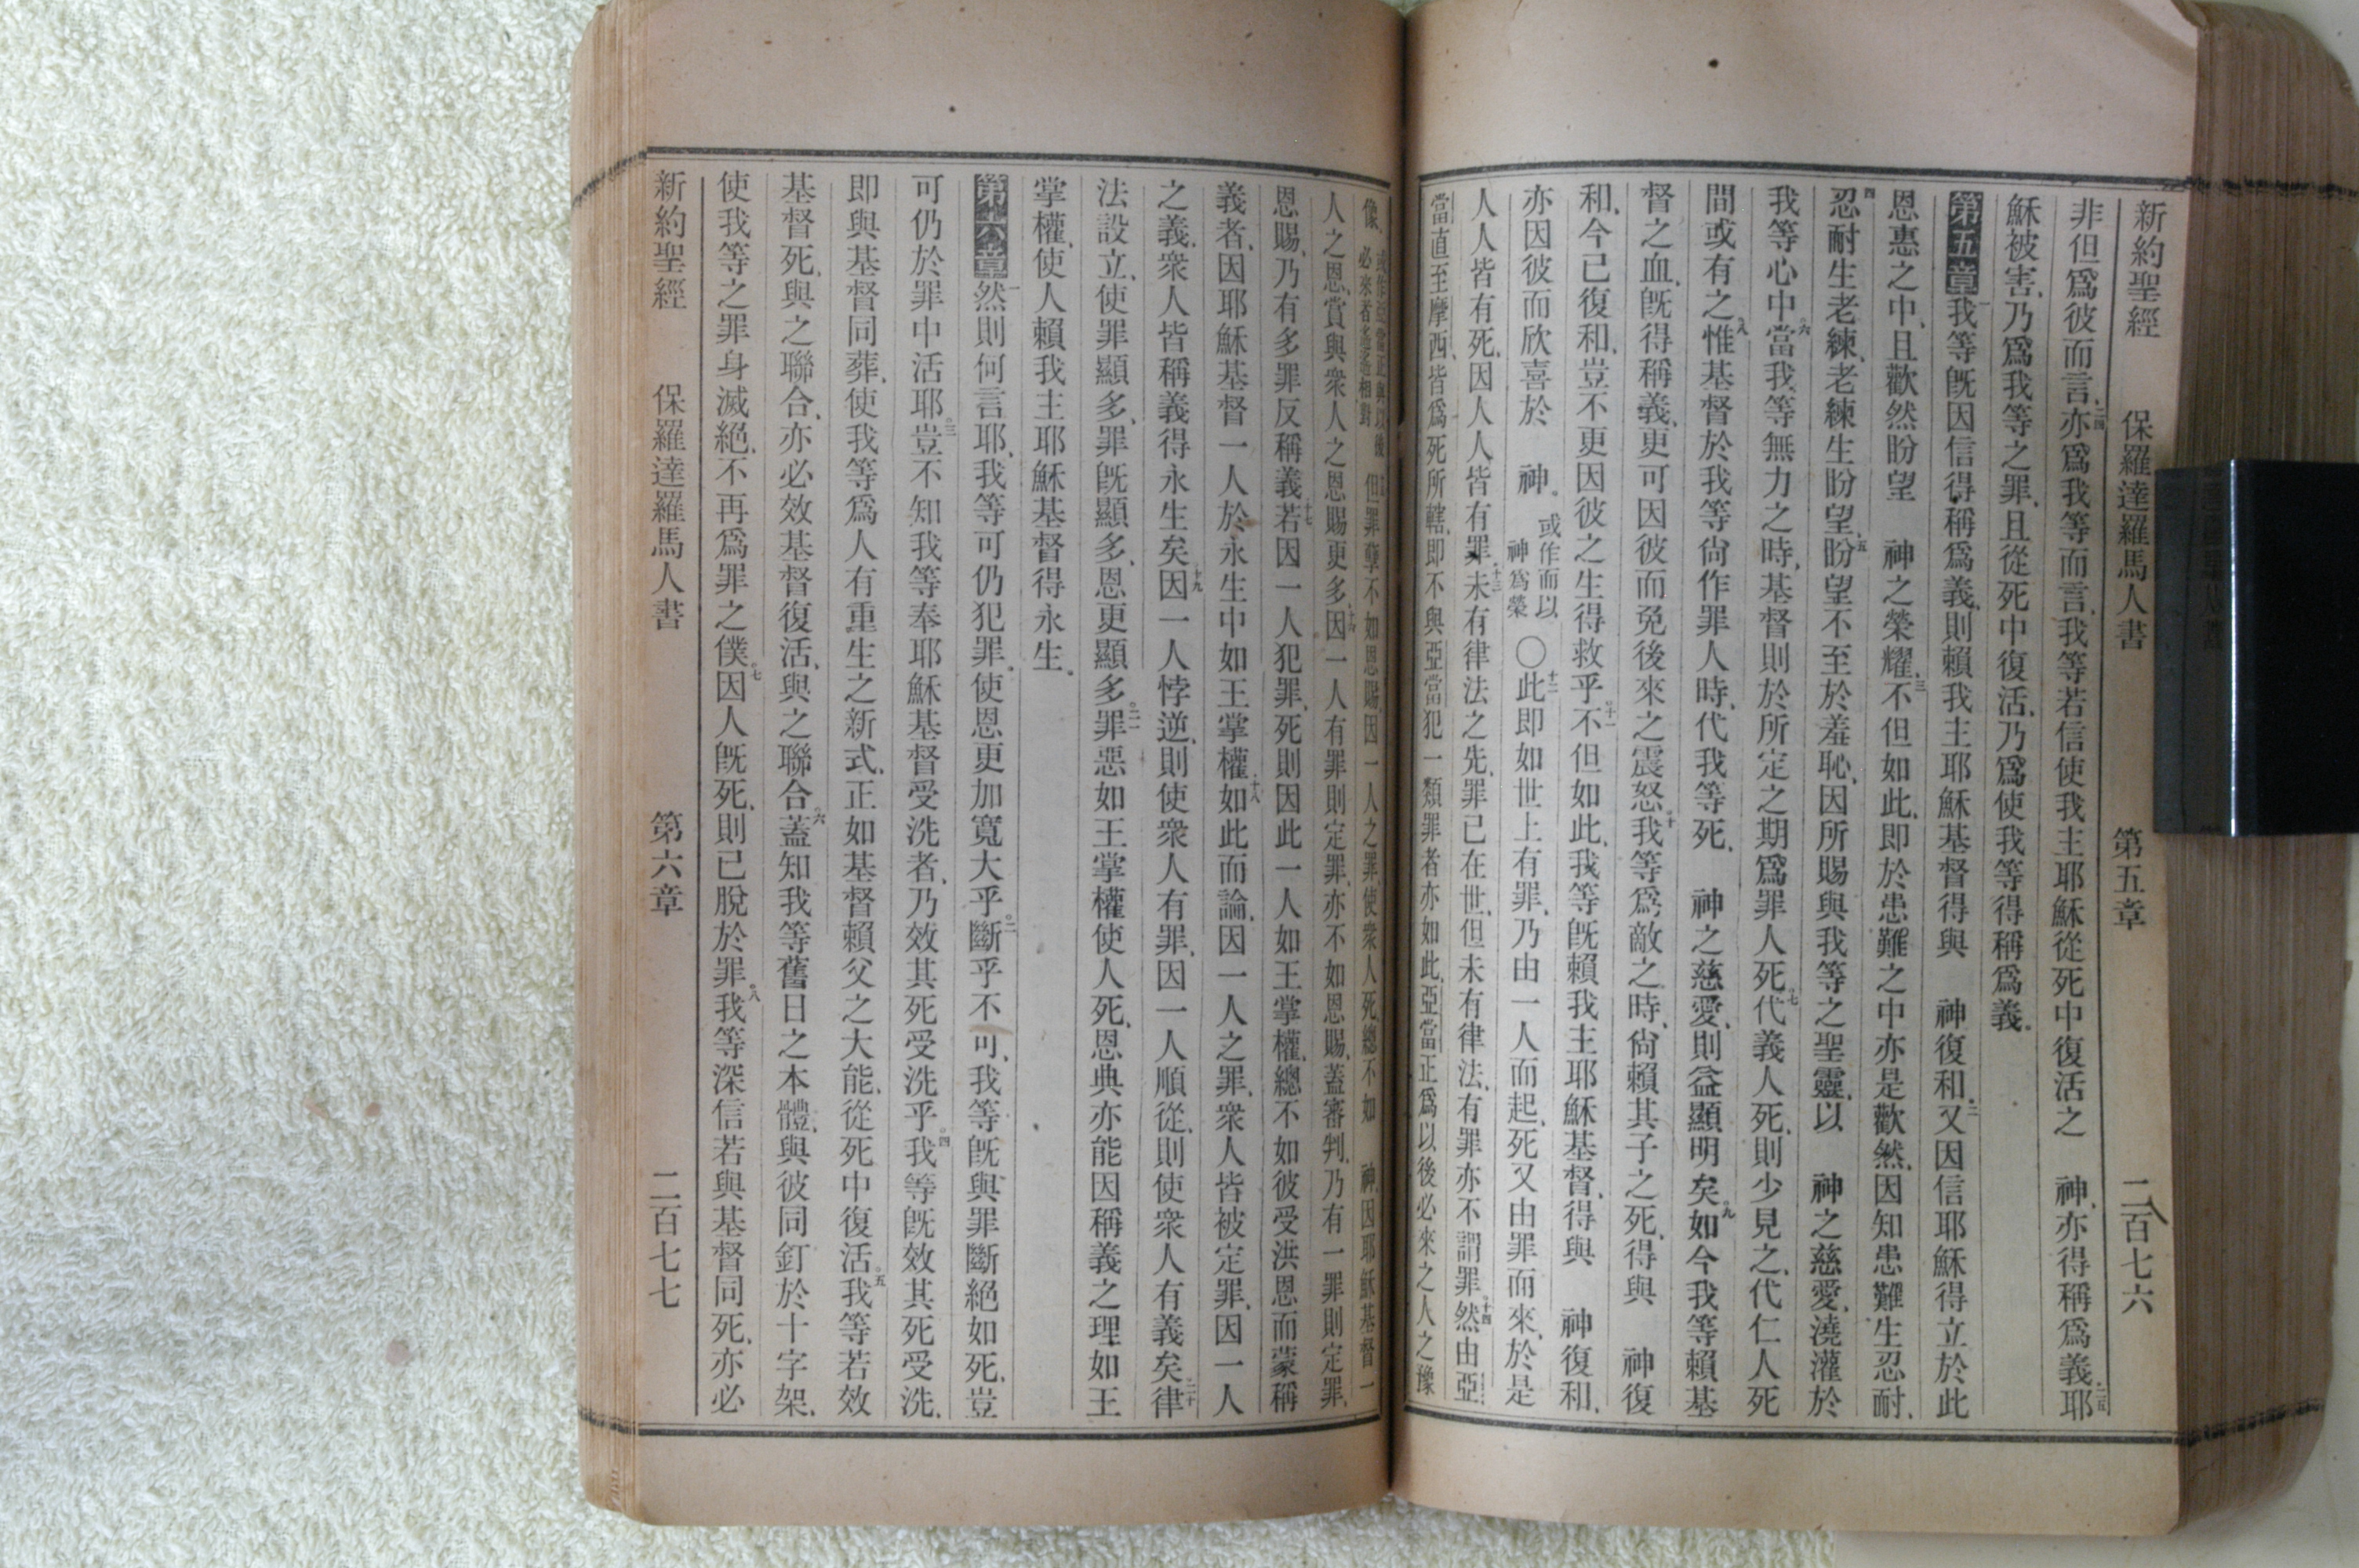 新約聖經　保羅達羅馬人書　第五章　二百七六
非但爲彼而言、二四亦爲我等而言、我等若信使我主耶穌從死中復活之　神、亦得稱爲義、二五耶
穌被害、乃爲我等之罪、且從死中復活、乃爲使我等得稱爲義。
第五章一我等旣因信得稱爲義、則賴我主耶穌基督得與　神復和、二又因信耶穌得立於此
恩惠之中、且歡然盼望　神之榮耀、三不但如此、卽於患難之中亦是歡然、因知患難生忍耐、
四忍耐生老練、老練生盼望、五盼望不至於羞恥、因所賜與我等之聖靈、以　神之慈愛、澆灌於
我等心中。六當我等無力之時、基督則於所定之期爲罪人死。七代義人死、則少見之、代仁人死
間或有之、八惟基督於我等尙作罪人時、代我等死、　神之慈愛、則益顯明矣。九如今我等賴基
督之血、旣得稱義、更可因彼而免後來之震怒。十我等爲敵之時、尙賴其子之死、得與　神復
和、今已復和、豈不更因彼之生得救乎。十一不但如此、我等旣賴我主耶穌基督、得與　神復和、
亦因彼而欣喜於　神。或作而以神爲榮〇十二此卽如世上有罪、乃由一人而起、死又由罪而來、於是
人人皆有死、因人人皆有罪。十三未有律法之先、罪已在世、但未有律法、有罪亦不謂罪。十四然由亞
當直至摩西、皆爲死所轄、卽不與亞當犯一類罪者亦如此、亞當正爲以後必來之人之豫
像、或作亞當正與以後必來者遙遙相對　但罪孽不如恩賜、因一人之罪、使衆人死、總不如　神因耶穌基督一
人之恩、賞與衆人之恩賜更多、十六因一人有罪則定罪、亦不如恩賜、蓋審判、乃有一罪則定罪、
恩賜、乃有多罪反稱義、十七若因一人犯罪、死則因此一人如王掌權、總不如彼受洪恩而蒙稱
義者、因耶穌基督一人、於永生中如王掌權、十八如此而論、因一人之罪、衆人皆被定罪、因一人
之義、衆人皆稱義得永生矣、十九因一人悖逆、則使衆人有罪、因一人順從、則使衆人有義矣、二十律
法設立、使罪顯多、罪旣顯多、恩更顯多。二一罪惡如王掌權使人死、恩典亦能因稱義之理如王
掌權、使人賴我主耶穌基督得永生。
第六章一然則何言耶、我等可仍犯罪、使恩更加寬大乎。二斷乎不可、我等旣與罪斷絕如死、豈
可仍於罪中活耶。三豈不知我等奉耶穌基督受洗者、乃效其死受洗乎。四我等旣效其死受洗、
卽與基督同葬、使我等爲人有重生之新式、正如基督賴父之大能、從死中復活。五我等若效
基督死、與之聯合、亦必效基督復活、與之聯合。六蓋知我等舊日之本體、與彼同釘於十字架、
使我等之罪身滅絕、不再爲罪之僕。七因人旣死、則已脫於罪。八我等深信若與基督同死、亦必
新約聖經　保羅達羅馬人書　第六章　二百七七